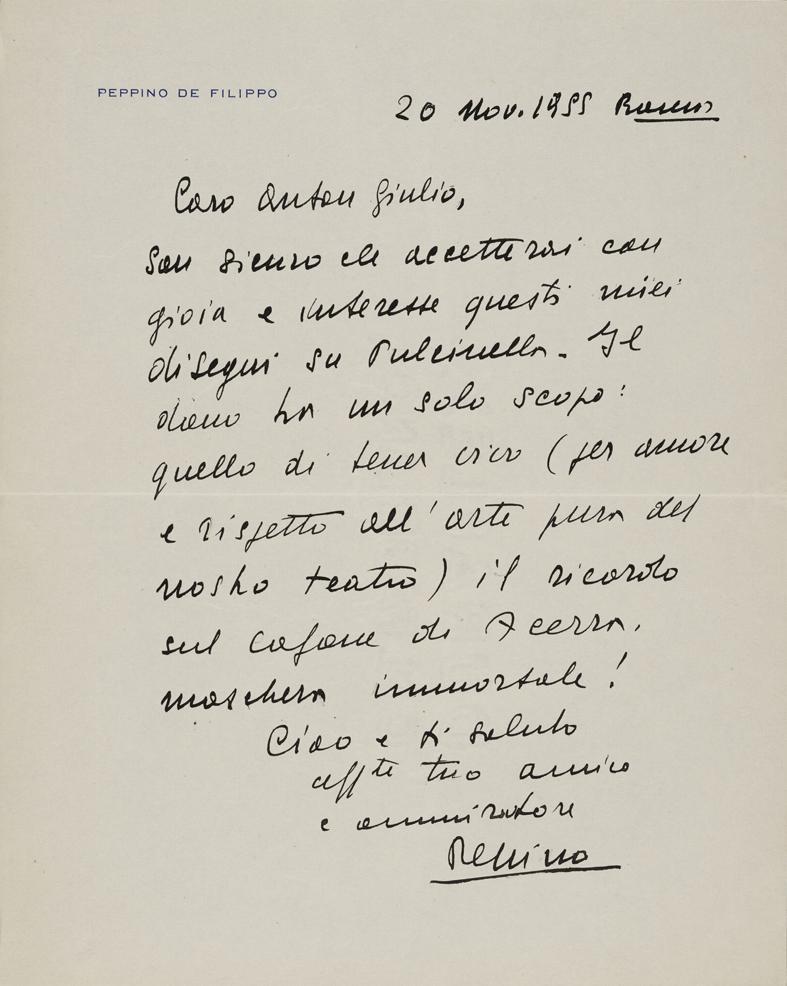 PEPPINO DE FILIPPO
20 Nov. 1955
Caro Anton Giulio,
son sicuro che accetterai con
gioia e interesse questi miei
disegni su Pulcinella. Il
dono ha un solo scopo:
quello di tener vivo (per amore
e rispetto all'arte pura del
nostro teatro) il ricordo
sul cafone di Acerra,
maschera immortale!
Ciao e ti saluto
affte tuo amico
e ammiratore
Peppino